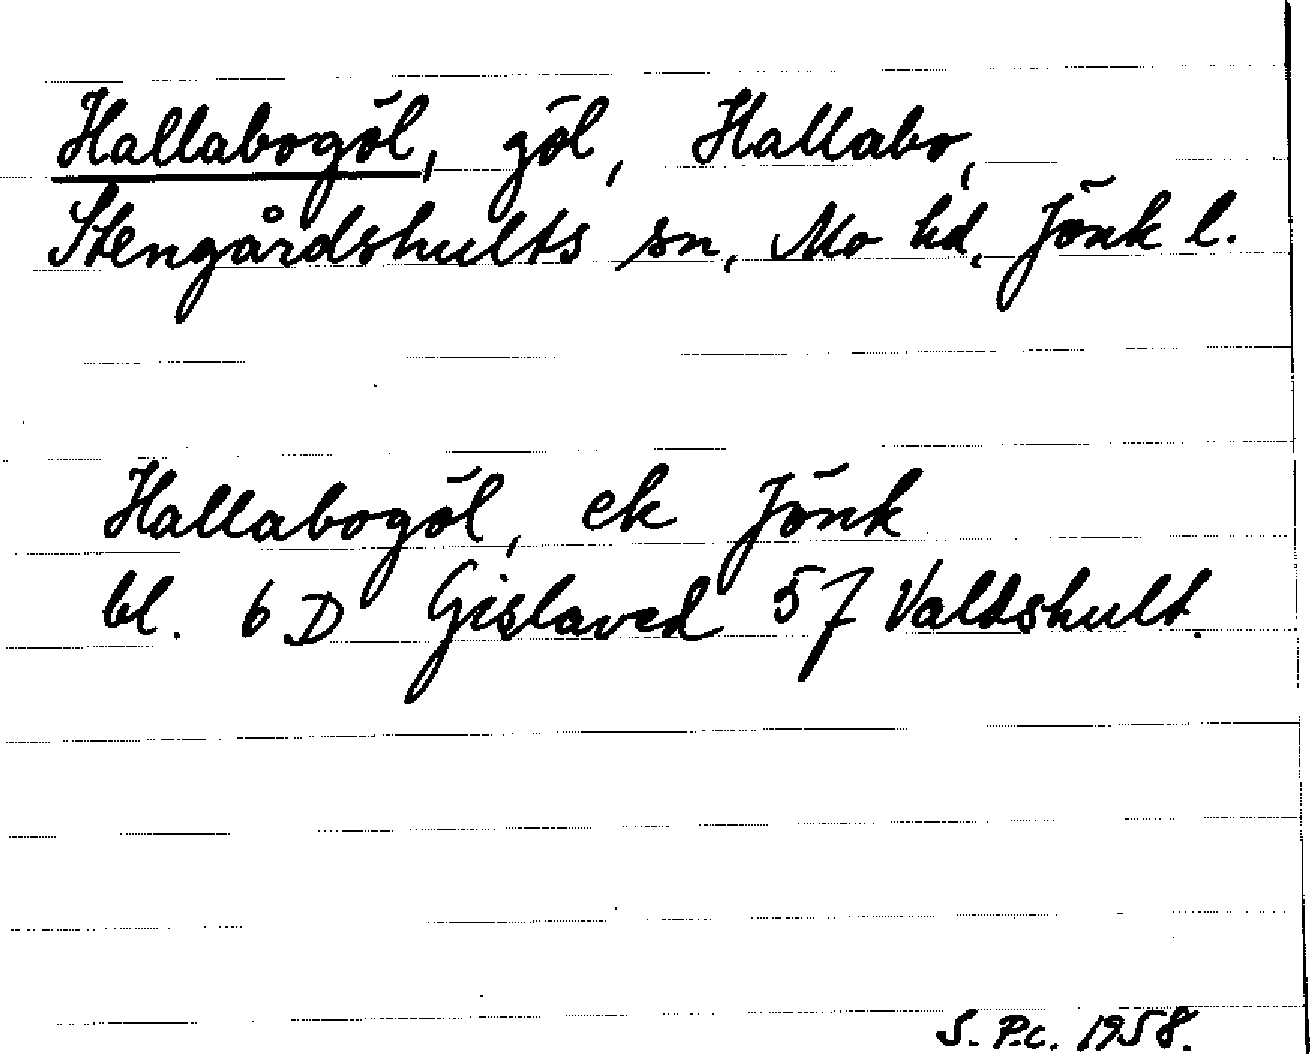 Hallabogöl, göl, Hallabo,
Stengårdshults sn, Mo hd, Jönk l.
Hallabogöl, ek Jönk
bl. 6 D Gislaved 5 f Valdshult.
S. P.c. 1958.